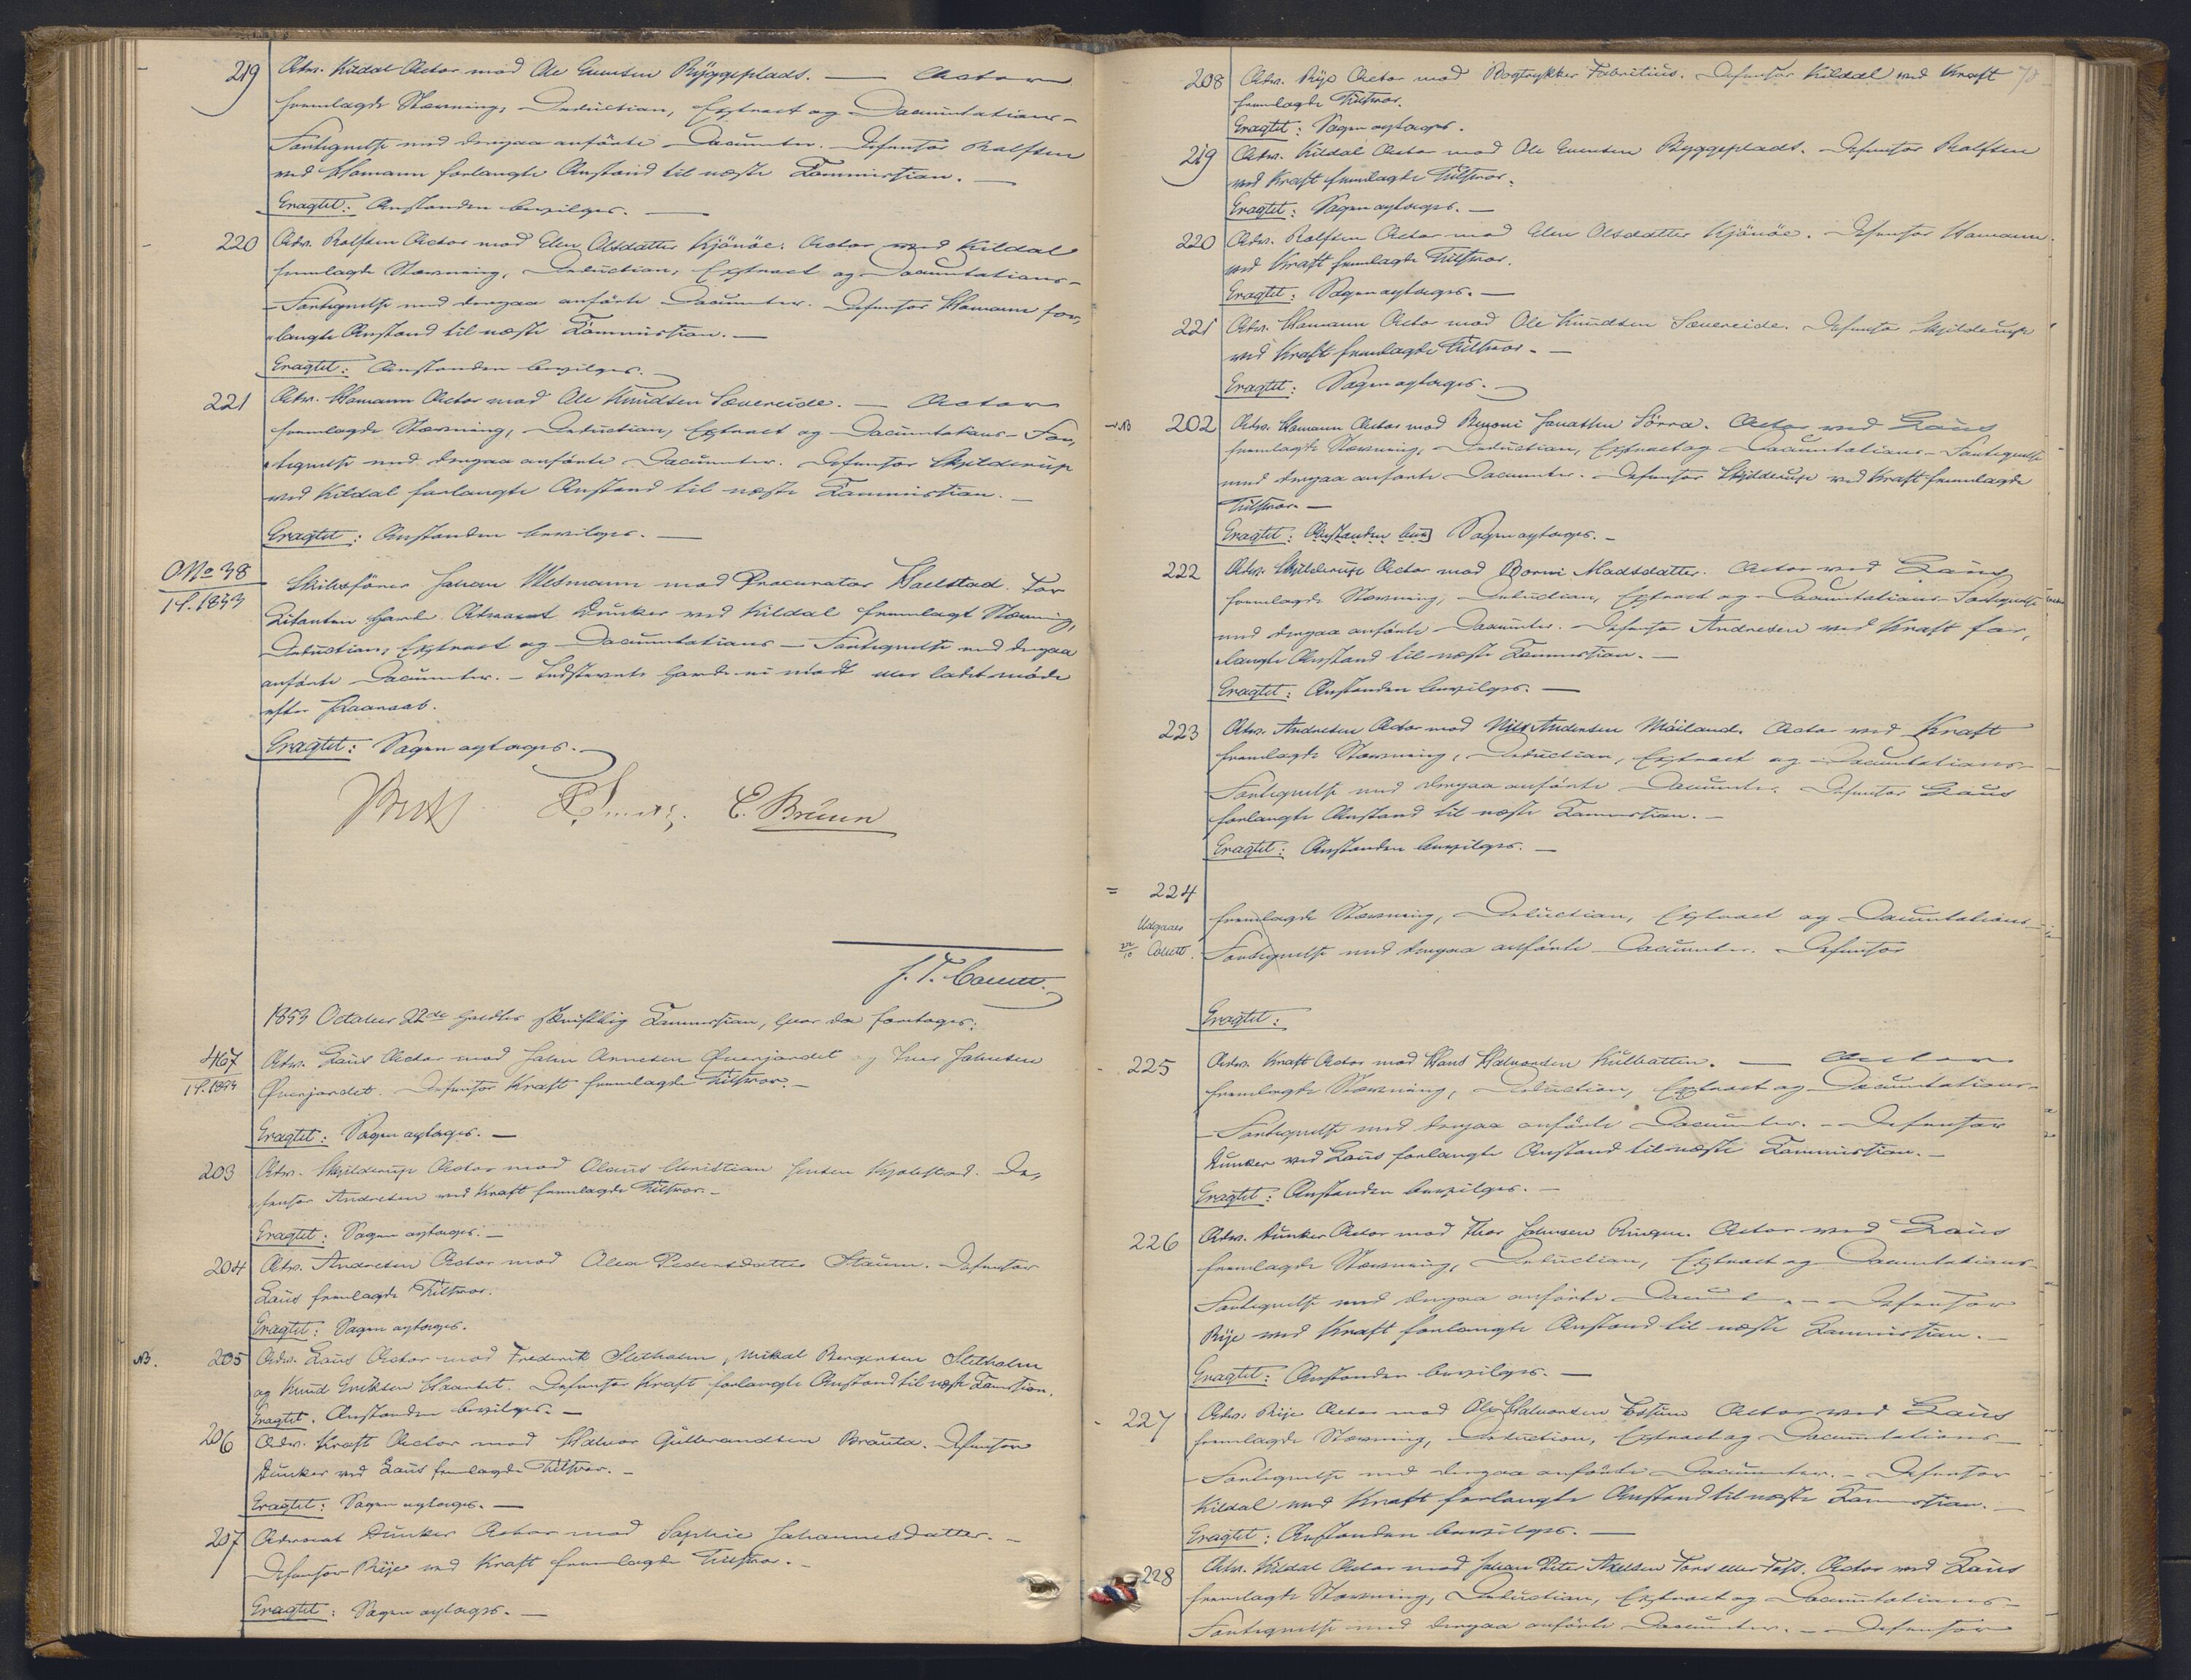 219 Adv. Kildal Actor mod Ole Evensen Byggeplads. — Actor
fremlagde Stævning, Deduction, Extract og Documentations-
Fortegnelse med derpaa anførte Documenter. Defensor Rolfsen
ved Homann forlangte Anstand til næste Kommission. —
Eragtet: Anstanden bevilges. —
220 Adv. Rolfsen Actor mod Elen Olsdatter Kjönöe. Actor ved Kildal
fremlagde Stævning, Deduction, Extract og Documentations-
Fortegnelse med derpaa anførte Documenter. Defensor Homann for,
langte Anstand til næste Kommission. —
Eragtet: Anstanden bevilges. —
221 Adv. Homann Actor mod Ole Knudsen Sævereide. — Actor
fremlagde Stævning, Deduction, Extract og Documentations-For,
tegnelse med derpaa anførte Documenter. Defensor Skjelderup
ved Kildal forlangte Anstand til næste Kommission. —
Eragtet: Anstanden bevilges. —
No 38
1 S. 1853
Skibsfører Johan Wesmann mod Procurator Haelstad. For
Citanten havde Advocat Dunker ved Kildal fremlagt Stævning,
Deduction, Extract og Documentations-Fortegnelse med derpaa
anførte Documenter. — Indstevnte havde ei mødt eller ladet møde
efter Paaraab.
Eragtet: Sagen optages. —
E. Bruun
1853 October 22de holdtes skriftlig Kommission, hvor da foretages:
467
1 S. 1853
Adv. Laus Actor mod John Arnesen Øverjordet og Iver Johnsen
Øverjordet. Defensor Kraft fremlagde Tilsvar. —
Eragtet: Sagen optages. —
203 Adv. Skjelderup Actor mod Olaus Christian Jensen Kjolstad. De,
fensor Andresen ved Kraft fremlagde Tilsvar. —
Eragtet: Sagen optages. —
204 Adv. Andresen Actor mod Olea Pedersdatter Staum. Defensor
Laus fremlagde Tilsvar.
Eragtet: Sagen optages.
NB. 205 Adv. Laus Actor mod Frederik Sletholm, Mikal Bergersen Sletholm
og Knud Eriksen Haartet. Defensor Kraft forlangte Anstand til næste Kommission.
Eragtet. Anstanden bevilges. —
206 Adv. Kraft Actor mod Halvor Gulbrandsen Brauta. Defensor
Dunker ved Laus fremlagde Tilsvar. —
Eragtet: Sagen optages. —
207 Advocat Dunker Actor mod Sophie Johannesdatter. —
Defensor Rije ved Kraft fremlagde Tilsvar. —
Eragtet: Sagen optages. —
208 Adv. Rije Actor mod Bogtrykker Fabritius. Defensor Kildal ved Kraft 70
fremlagde Tilsvar.
Eragtet: Sagen optages.
219 Adv. Kildal Actor mod Ole Evensen Byggeplads. Defensor Rolfsen
ved Kraft fremlagde Tilsvar.
Eragtet: Sagen optages. —
220 Adv. Rolfsen Actor mod Elen Olsdatter Kjönöe. Defensor Homann
ved Kraft fremlagde Tilsvar.
Eragtet: Sagen optages. —
221 Adv. Homann Actor mod Ole Knudsen Sævereide. Defensor Skjelderup
ved Kraft fremlagde Tilsvar. —
Eragtet: Sagen optages. —
NB 202 Adv. Homann Actor mod Jonathan Sörra. Actor ved Laus
fremlagde Stævning, Deduction, Extract og Documentations-Fortegnelse
med derpaa anførte Documenter. Defensor Skjelderup ved Kraft fremlagde
Tilsvar. —
Eragtet: Anstanden bev] Sagen optages. —
222 Adv. Skjelderup Actor mod Borni Madsdatter. Actor ved Laus
fremlagde Stævning, Deduction, Extract og Documentations-Fortegnelse
med derpaa anførte Documenter. Defensor Andresen ved Kraft for,
langte Anstand til næste Kommission. —
Eragtet: Anstanden bevilges. —
223 Adv. Andresen Actor mod Nils Andersen Möiland. Actor ved Kraft
fremlagde Stævning, Deduction, Extract og Documentations-
Fortegnelse med derpaa anførte Documenter. Defensor Laus
forlangte Anstand til næste Kommission. —
Eragtet: Anstanden bevilges. —
= 224
Udgaaer
22/10
fremlagde Stævning, Deduction, Extract og Documentations-
Fortegnelse med derpaa anførte Documenter. Defensor
Eragtet:
225 Adv. Kraft Actor mod Hans Halvorsen Kulbatten. — Actor
fremlagde Stævning, Deduction, Extract og Documentations-
Fortegnelse med derpaa anførte Documenter. — Defensor
Dunker ved Laus forlangte Anstand til næste Kommission. —
Eragtet: Anstanden bevilges. —
226 Adv. Dunker Actor mod Thor Johnsen Ringen. Actor ved Laus
fremlagde Stævning, Deduction, Extract og Documentations-
Fortegnelse med derpaa anførte Documenter. — Defensor
Rije ved Kraft forlangte Anstand til næste Kommission. —
Eragtet: Anstanden bevilges. —
227 Adv. Rije Actor mod Ole Halvorsen Fossum Actor ved Laus
fremlagde Stævning, Deduction, Extract og Documentations-
Fortegnelse med derpaa anførte Documenter. — Defensor
Kildal ved Kraft forlangte Anstand til næste Kommission. —
Eragtet: Anstanden bevilges. —
228 Adv. Kildal Actor mod Johan Peter Axelsen Fors eller Foss. Actor ved Laus
fremlagde Stævning, Deduction, Extract og Documentations-
Fortegnelse med derpaa anførte Documenter. — Defensor